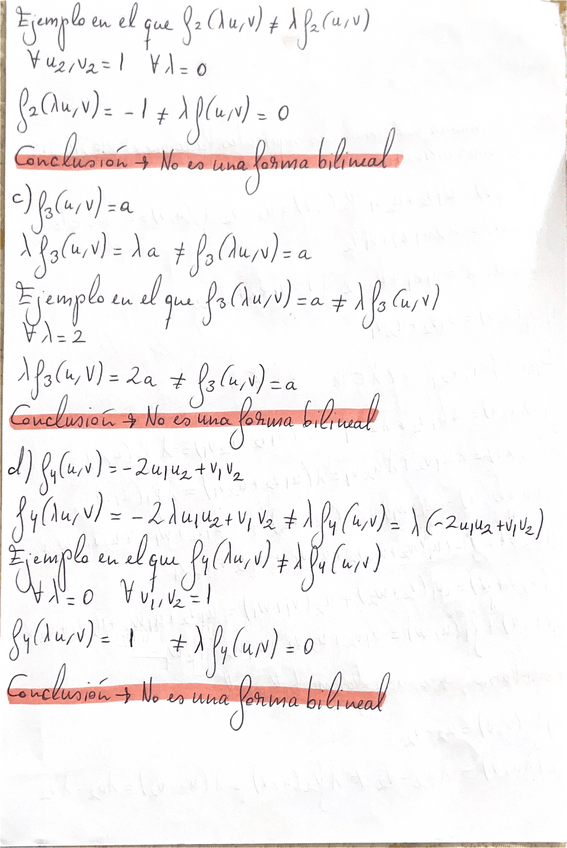 Ejemplo en el que f₂(λu,v) ≠ λf₂(u,v)
∀u₂,v₂=1 ∀λ=0
f₂(λu,v) = -1 ≠ λf(u,v) = 0
Conclusión → No es una forma bilineal
c) f₃(u,v)=a
λf₃(u,v) = λa ≠ f₃(λu,v) = a
Ejemplo en el que f₃(λu,v)=a ≠ λf₃(u,v)
∀λ=2
λf₃(u,v) = 2a ≠ f₃(u,v)=a
Conclusión → No es una forma bilineal
d) f₄(u,v) = -2u₁u₂+v₁v₂
f₄(λu,v) = -2λu₁u₂+v₁v₂ ≠ λf₄(u,v) = λ(-2u₁u₂+v₁v₂)
Ejemplo en el que f₄(λu,v) ≠ λf₄(u,v)
∀λ=0 ∀v₁,v₂=1
f₄(λu,v) = 1 ≠ λf₄(u,v) = 0
Conclusión → No es una forma bilineal